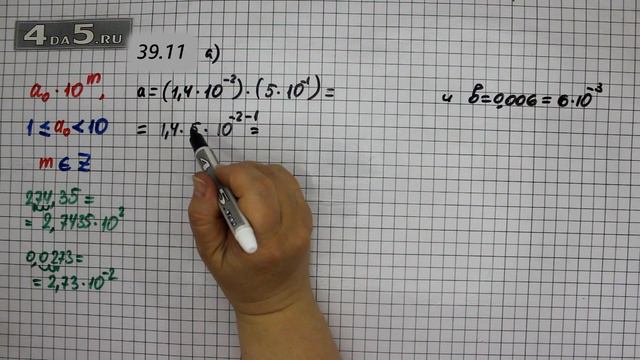 4DA5.RU
39.11 а)
a₀ · 10ᵐ,
1 ≤ a₀ < 10
m ∈ Z
274,35 =
= 2,7435 · 10²
0,0273 =
= 2,73 · 10⁻²
a = (1,4 · 10⁻²) · (5 · 10⁻¹) =
= 1,4 · 5 · 10⁻²⁻¹ =
и b = 0,006 = 6 · 10⁻³